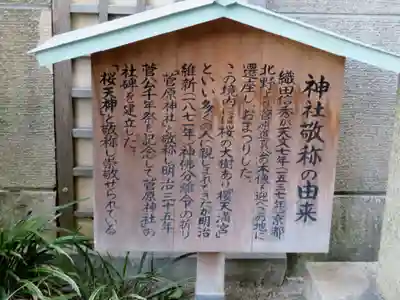 神社敬称の由来
織田信秀が天文七年(一五三七年)京都
北野より菅原道真公の木像を迎へこの地に
遷座し、おまつりした。
この境内には桜の大樹あり「櫻天満宮」
といい多くの人に親しまれていたが明治
維新(一八七一年)神佛分離令の折り
「菅原神社」と敬称し明治三十五年
菅公千年祭を記念して「菅原神社」の
社碑を建立した。
「桜天神」と敬称し崇敬せられている